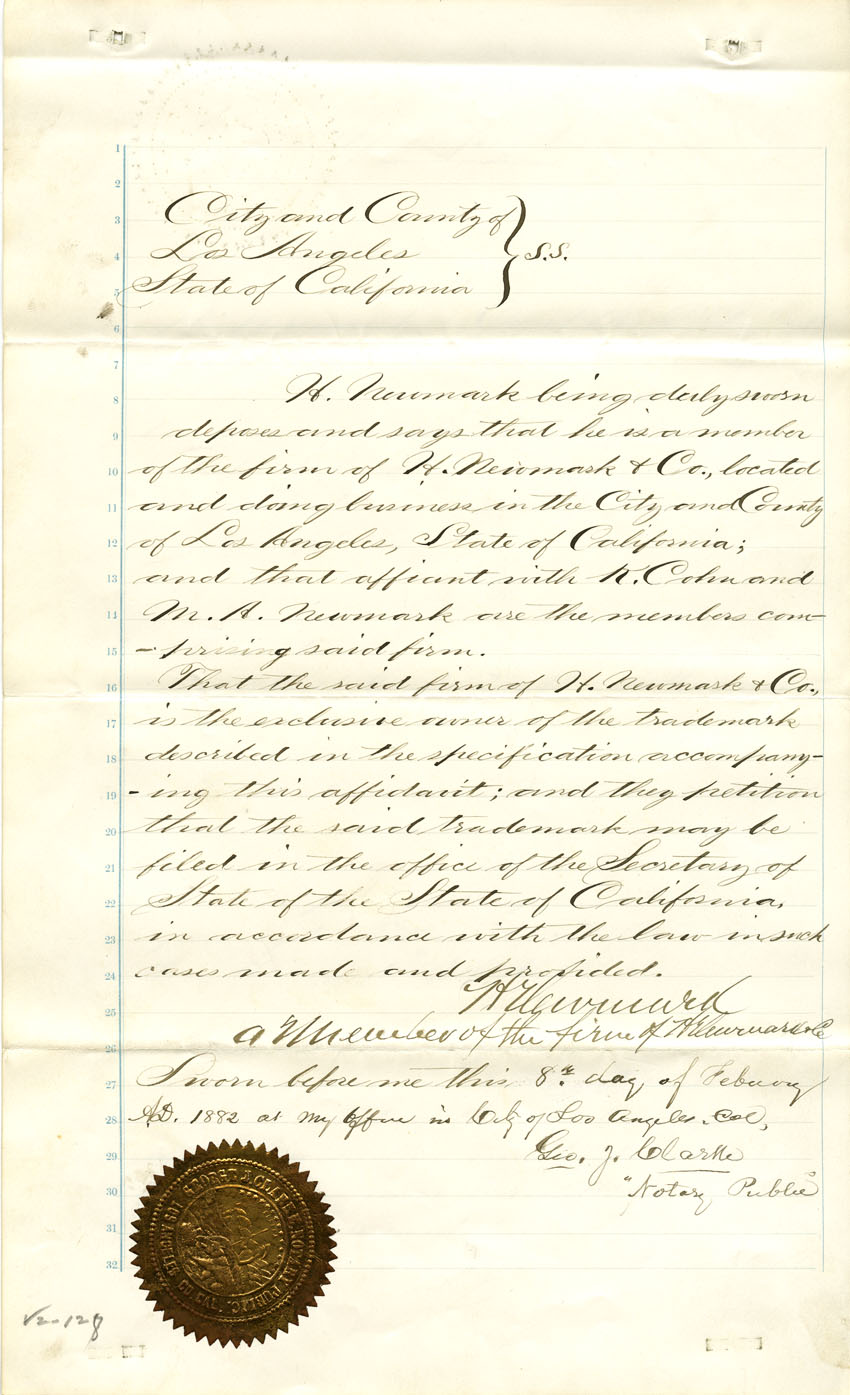 City and County of
Los Angeles
State of California
S.S.
H. Newmark being duly sworn
deposes and says that he is a member
of the firm of H. Newmark & Co., located
and doing business in the City and County
of Los Angeles, State of California;
and that affiant with K. Cohn and
M. A. Newmark are the members com-
- prising said firm.
That the said firm of H. Newmark & Co.,
is the exclusive owner of the trademark
described in the specification accompany-
- ing this affidavit; and they petition
that the said trademark may be
filed in the office of the Secretary of
State of the State of California,
in accordance with the law in such
cases made and provided.
H Newmark
a Member of the firm of H Newmark & Co
Sworn before me this 8th day of Febuary
AD. 1882 at my office in City of Los Angeles. Cal,
Geo. J. Clarke
"Notary Public"
1
2
3
4
5
6
7
8
9
10
11
12
13
14
15
16
17
18
19
20
21
22
23
24
25
26
27
28
29
30
31
32
GEORGE J. CLARKE NOTARY PUBLIC.
LOS ANGELES CO. CAL.
V2-128